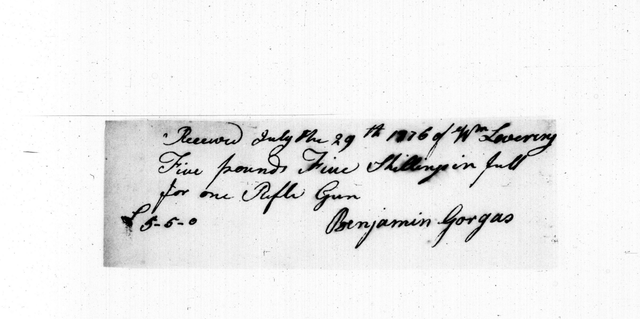 Received July the 29th 1776 of Wm Levering
Five pounds Five Shillings in full
for one Rifle Gun
£ 5-5-0 Benjamin Gorgas